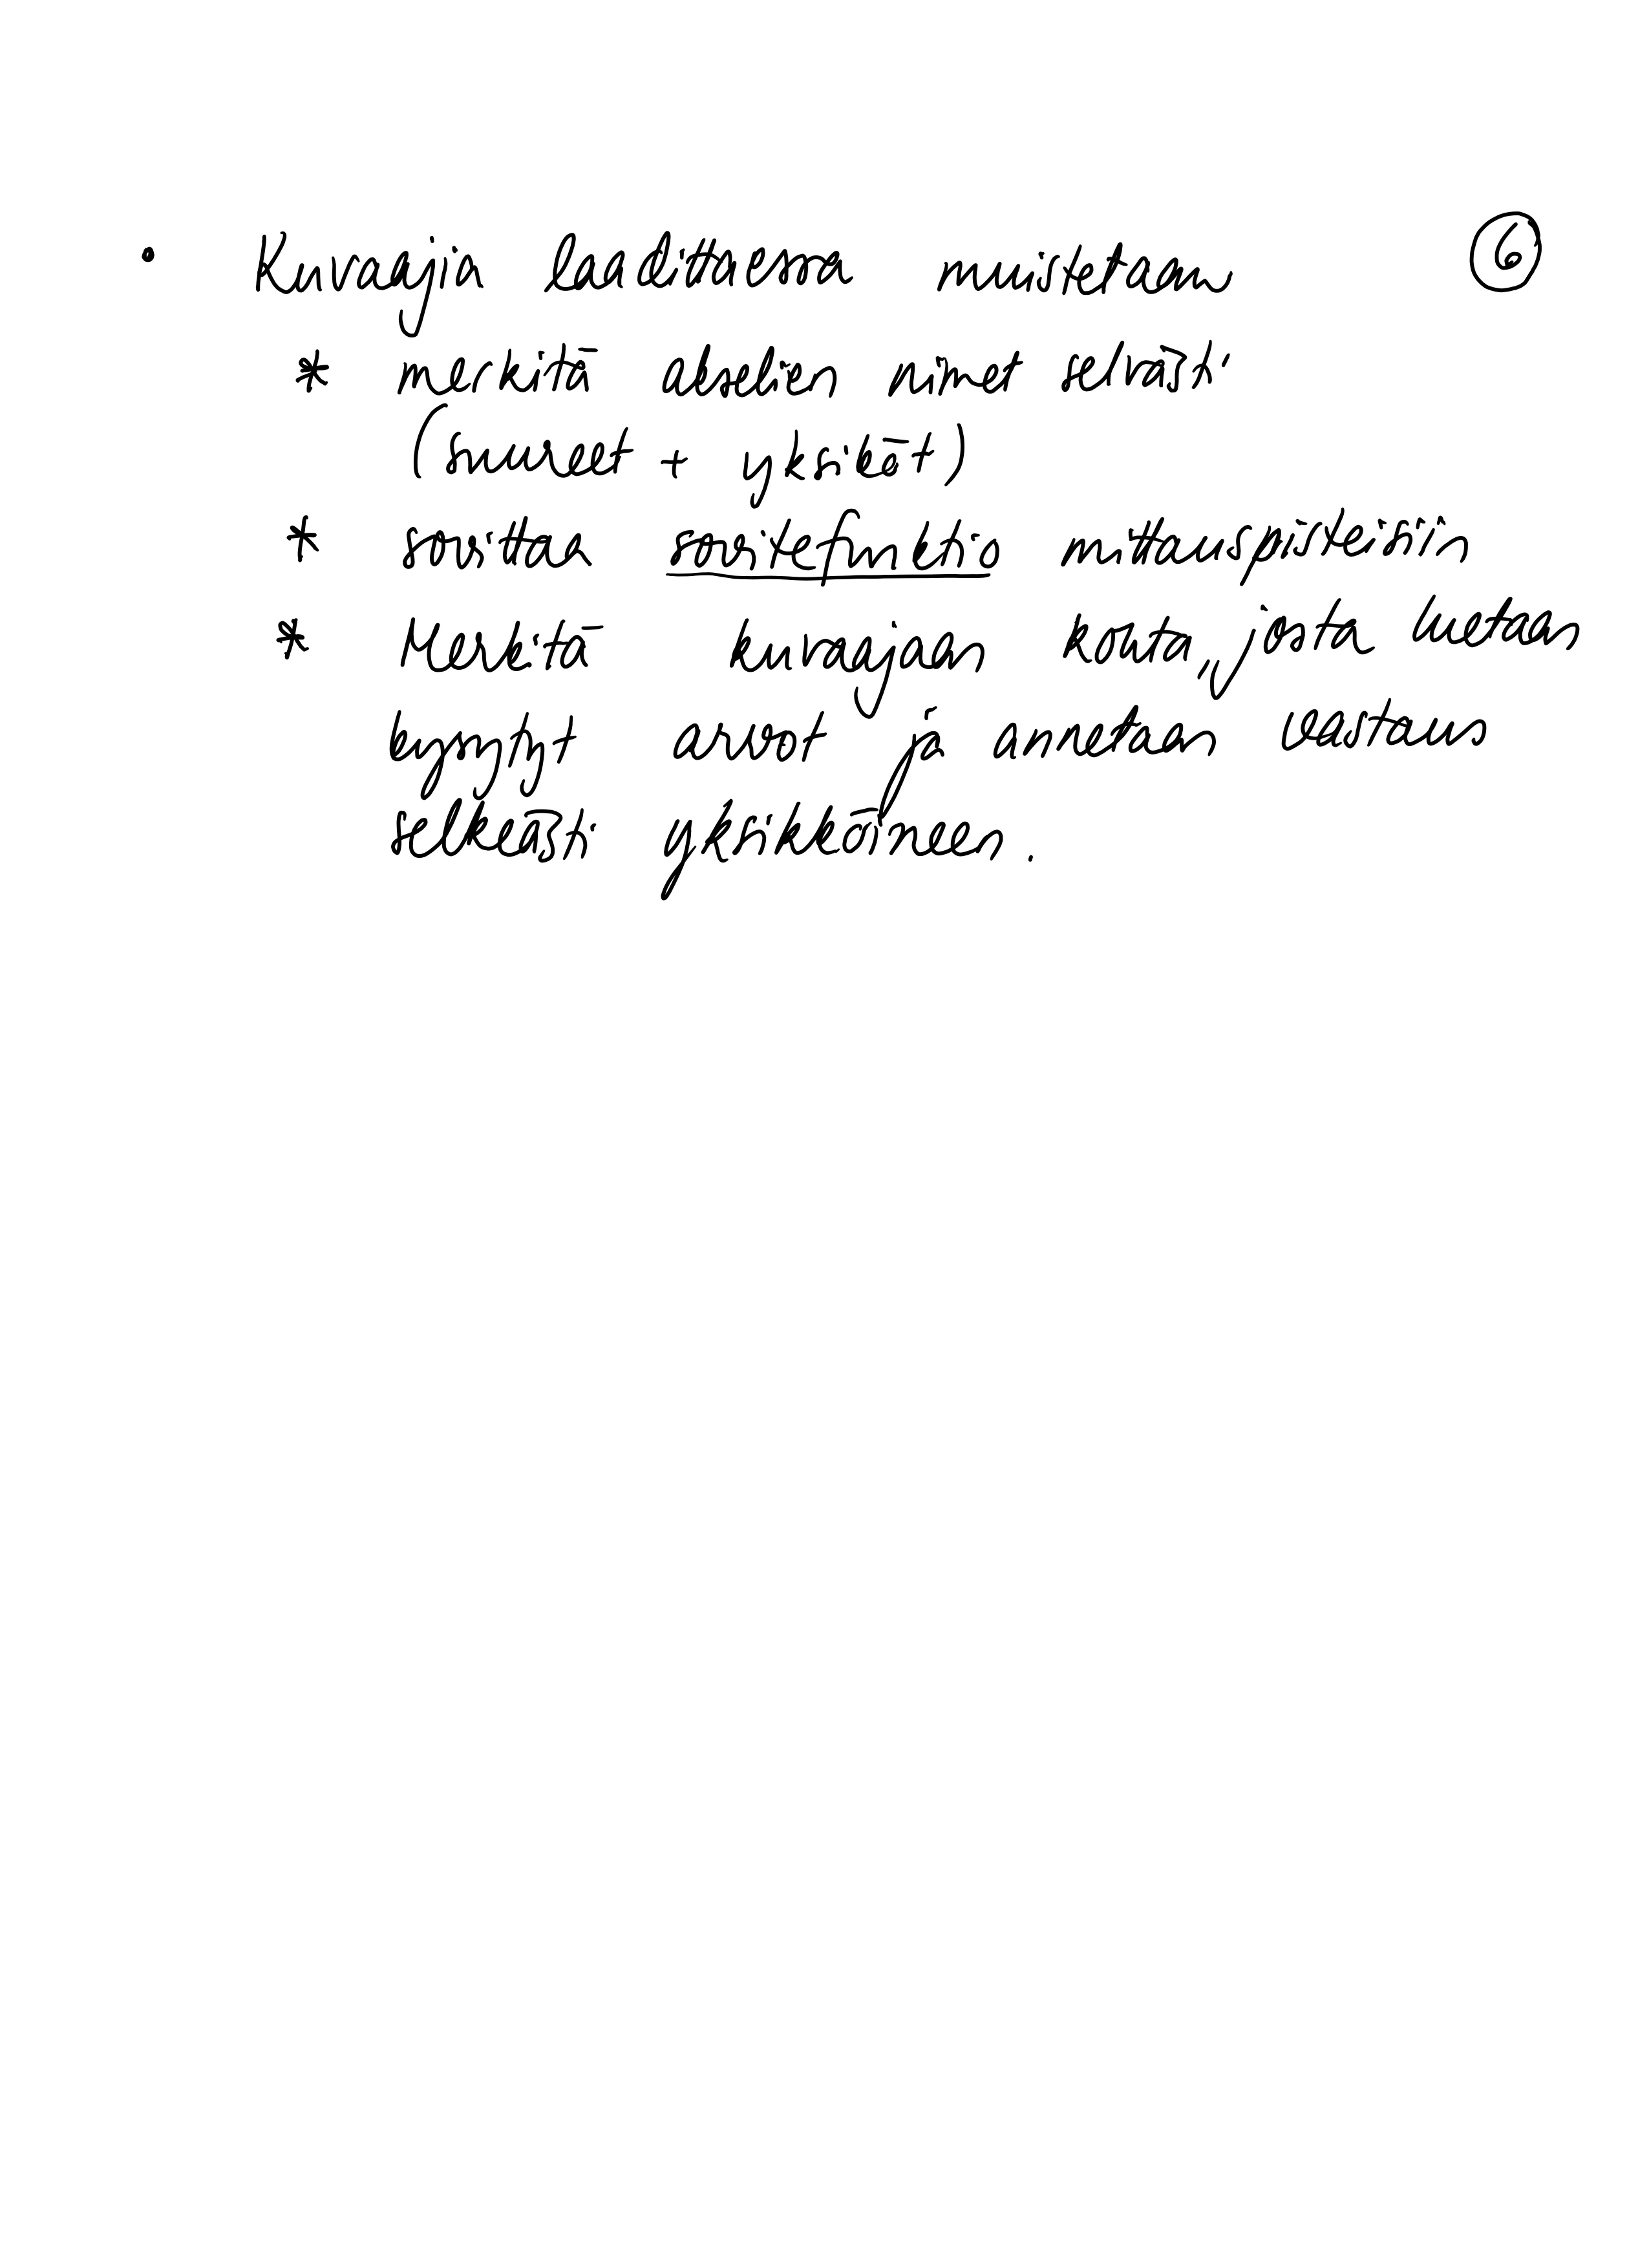 • Kuvaajia laadittaessa muistetaan ⑥
* merkitä akselien nimet selvästi
(suureet + yksiköt)
* sovittaa sovitefunktio mittauspisteisiin
* Merkitä kuvaajaan kohta, josta luetaan
kysytyt arvot ja annetaan vastaus
selkeästi yksikköineen.